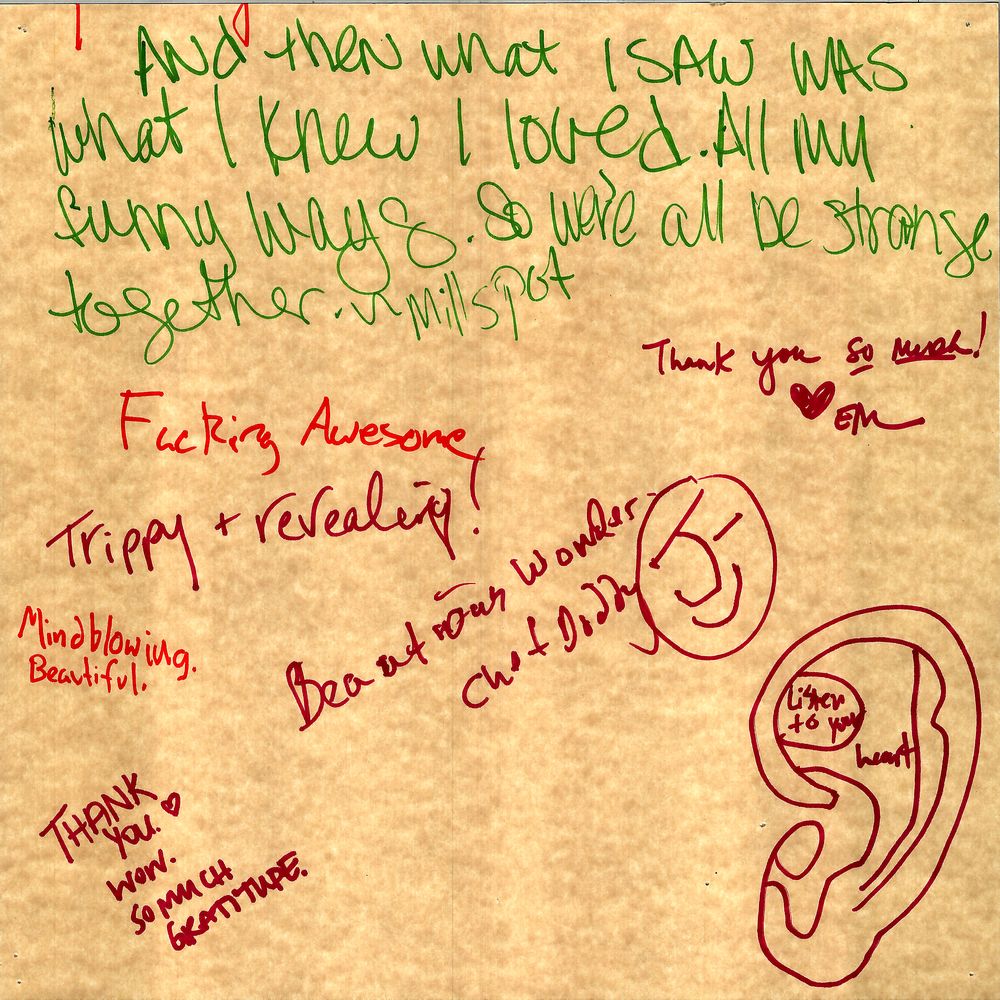 And then what I SAW WAS
what I knew I loved. All my
funny ways. So we're all be strange
together. ~ Millspot
Thank you so much!
EM
Fucking Awesome
Trippy + revealing!
Mindblowing.
Beautiful.
Beautious Wonder.
Listen
to your
heart
THANK
YOU.
WOW.
SO MUCH
GRATITUDE.